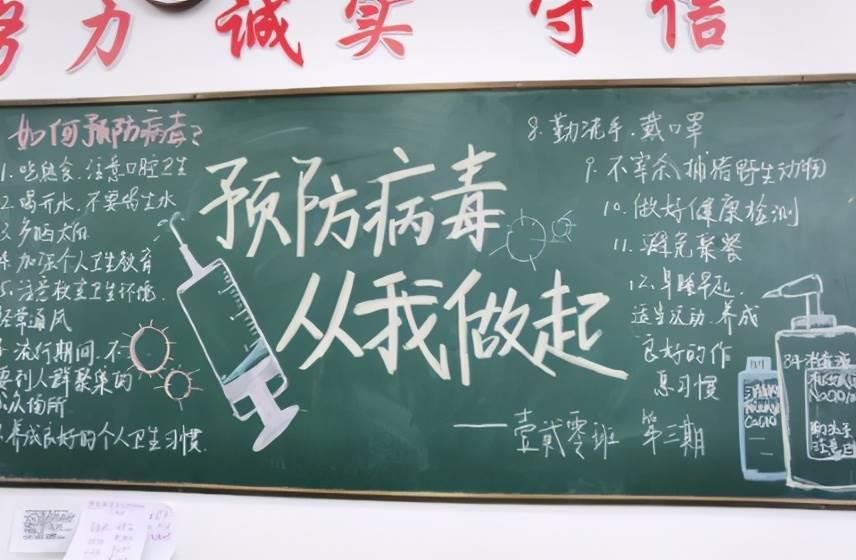 努力 诚实 守信
如何预防病毒?
1. 吃熟食、注意口腔卫生
2. 喝开水、不要喝生水
3. 多晒太阳
4. 加强个人卫生教育
5. 注意教室卫生环境
经常通风
流行期间、不
要到人群聚集的
公众场所
养成良好的个人卫生习惯.
预防病毒
从我做起
——壹贰零班 第三期
8. 勤洗手、戴口罩
9. 不宰杀、捕猎野生动物
10. 做好健康检测
11. 避免聚餐
12. 早睡早起
适当运动、养成
良好的作
息习惯
84消毒液